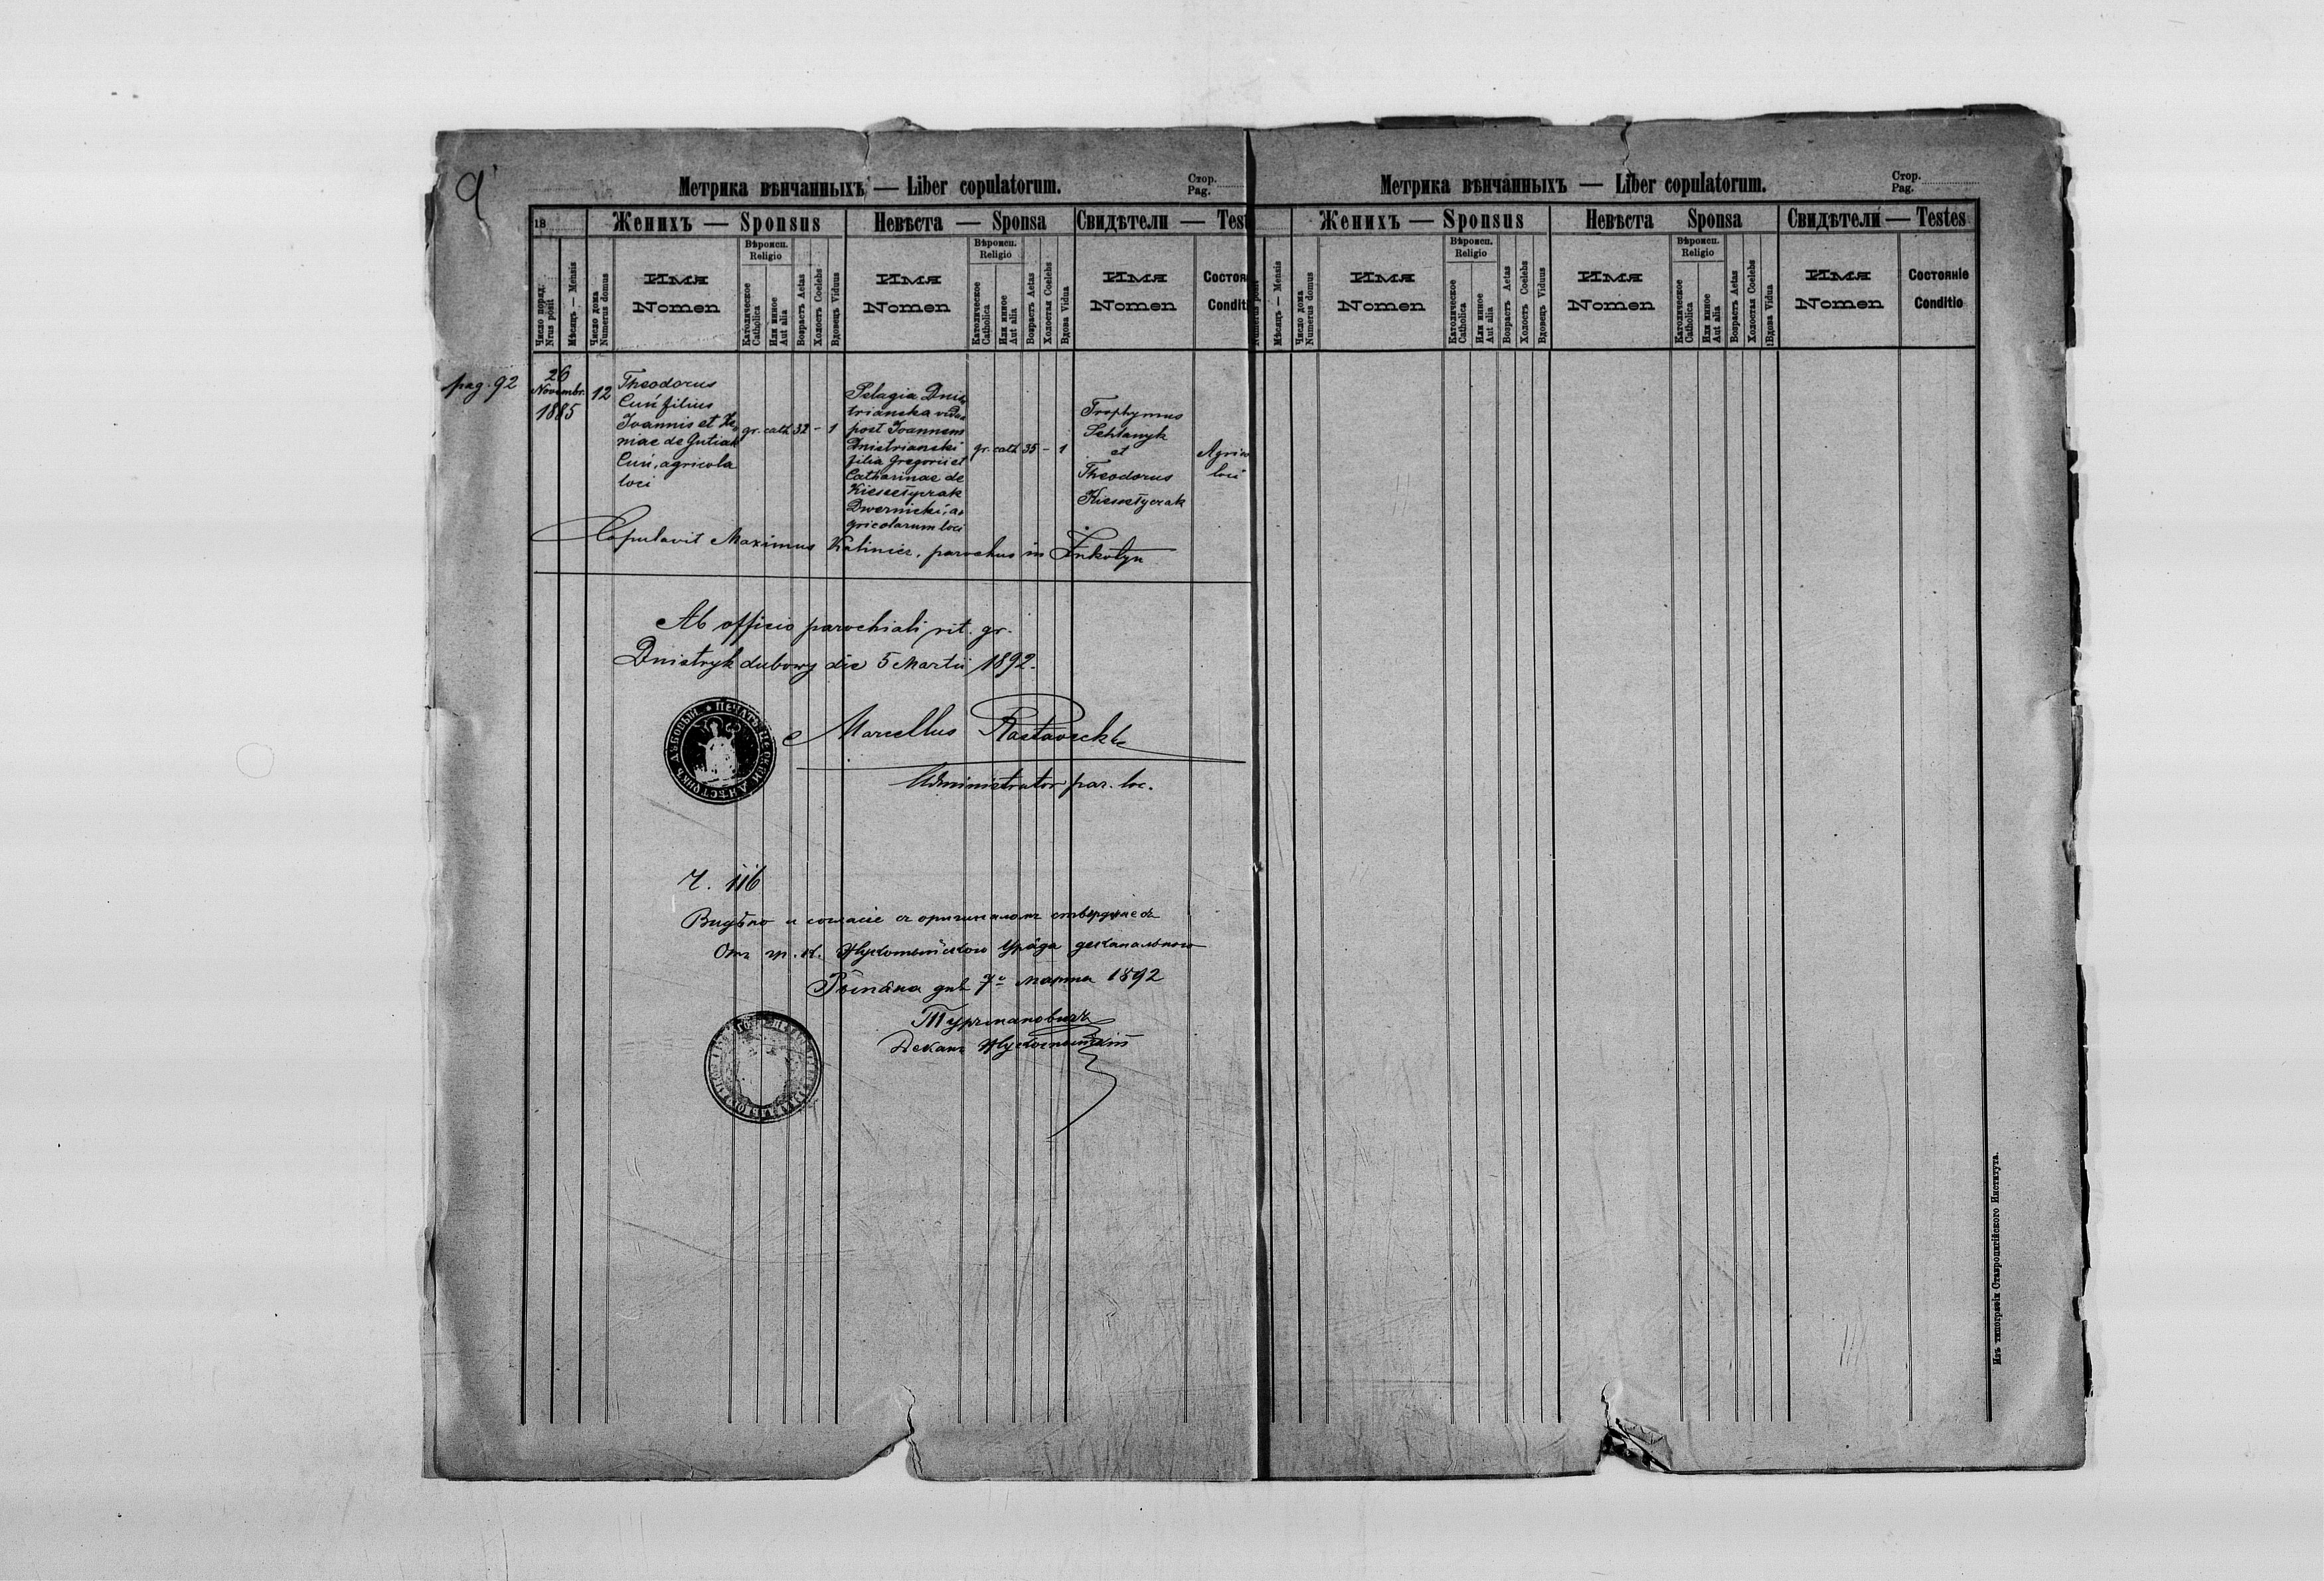 9
Метрика вѣнчанныхъ — Liber copulatorum.
Стор.
Pag.
18
Женихъ — Sponsus
Невѣста — Sponsa
Свидѣтели — Test
Число поряд.
Nrus posit
Мѣсяцъ — Mensis
Число дома
Numerus domus
Имя
Nomen
Вѣроисп.
Religio
Католическое
Catholica
Или инное
Aut alia
Возрастъ Aetas
Холостъ Coelebs
Вдовецъ Viduus
Имя
Nomen
Вѣроисп.
Religio
Католическое
Catholica
Или инное
Aut alia
Возрастъ Aetas
Холостая Coelebs
Вдова Vidua
Имя
Nomen
Состоя
Conditi
pag. 92
26
Novembr.
1885
12
Theodorus
Cuń filius
Joannis et Xe,
niae de Gutiak
Cuń, agricola
loci
gr. cath 32 - 1
Pelagia Dnis,
trianska vidua
post Joannem
Dnistrianski
filia Gregorii et
Catharinae de
Dwernicki, a,
gricolarum loci
gr. cath 35 - 1
Trophymus
et
Theodorus
Agric
loci
Copulavit Maximus Kalinicz, parochus in
Ab officio parochiali rit. gr.
Dnistryk dubowy die 5 Martii 1892.
Marcellus
Administrator par. loc.
Ч. 116
Видѣно и согласіе съ оригиналомъ
Отъ гр. к. Жукотыньского Уряда деканального
дня 7го марта 1892
Турчмановичъ
Деканъ Жукотыньскій
Метрика вѣнчанныхъ — Liber copulatorum.
Стор.
Pag.
Женихъ — Sponsus
Невѣста Sponsa
Свидѣтели — Testes
Мѣсяцъ — Mensis
Число дома
Numerus domus
Имя
Nomen
Вѣроисп.
Religio
Католическое
Catholica
Или инное
Aut alia
Возрастъ Aetas
Холостъ Coelebs
Вдовецъ Viduus
Имя
Nomen
Вѣроисп.
Religio
Католическое
Catholica
Или инное
Aut alia
Возрастъ Aetas
Холостая Coelebs
Вдова Vidua
Имя
Nomen
Состояніе
Conditio
Изъ типографіи Ставропигійского Института.